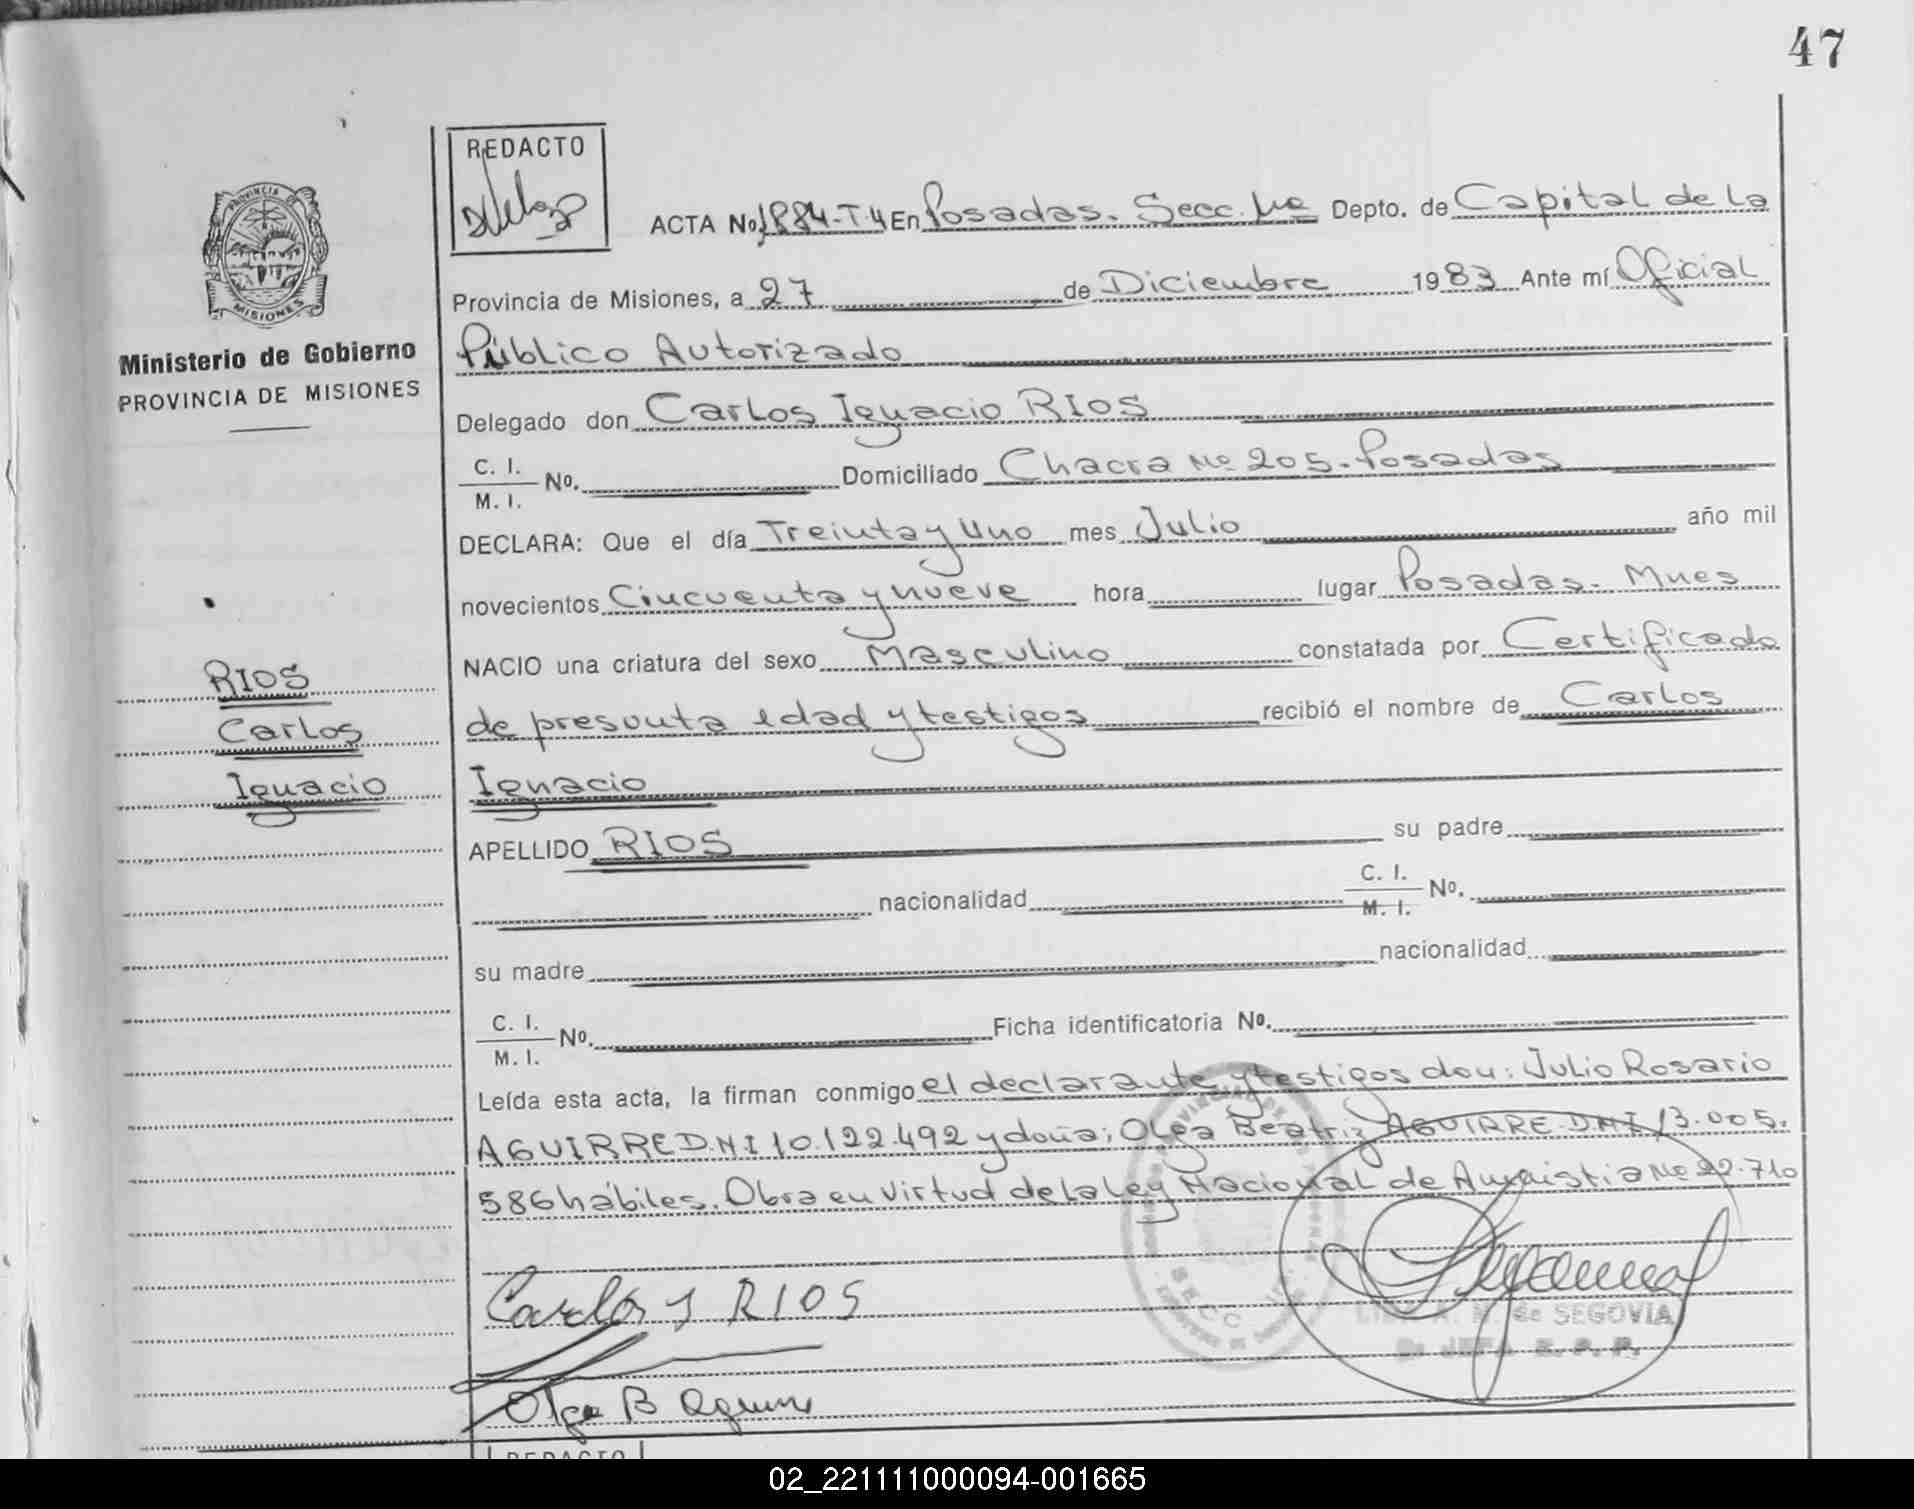 47
REDACTO
ACTA No. 1884-T.4 En Posadas. Secc. 1ra Depto. de Capital de la
Provincia de Misiones, a 27 de Diciembre 1983 Ante mí Oficial
Público Autorizado
Delegado don Carlos Ignacio RIOS
C. I. M. I. No. Domiciliado Chacra Nº 205. Posadas
DECLARA: Que el día Treinta y Uno mes Julio año mil
novecientos Cincuenta y nueve hora lugar Posadas. Mnes
NACIO una criatura del sexo Masculino constatada por Certificado
de presunta edad y testigos recibió el nombre de Carlos
Ignacio
APELLIDO RIOS su padre
nacionalidad C. I. M. I. No.
su madre nacionalidad
C. I. M. I. No. Ficha identificatoria No.
Leída esta acta, la firman conmigo el declarante y testigos don: Julio Rosario
AGUIRRE D.N.I 10.122.492 y doña; Olga Beatriz AGUIRRE D.N.I 13.005.
586 hábiles. Obra en Virtud de la Ley Nacional de Amnistia Nº 22.710
Carlos I RIOS
Olga B Aguirre
A. M. de SEGOVIA
REDACTO
PROVINCIA DE
MISIONES
Ministerio de Gobierno
PROVINCIA DE MISIONES
RIOS
Carlos
Ignacio
02_221111000094-001665